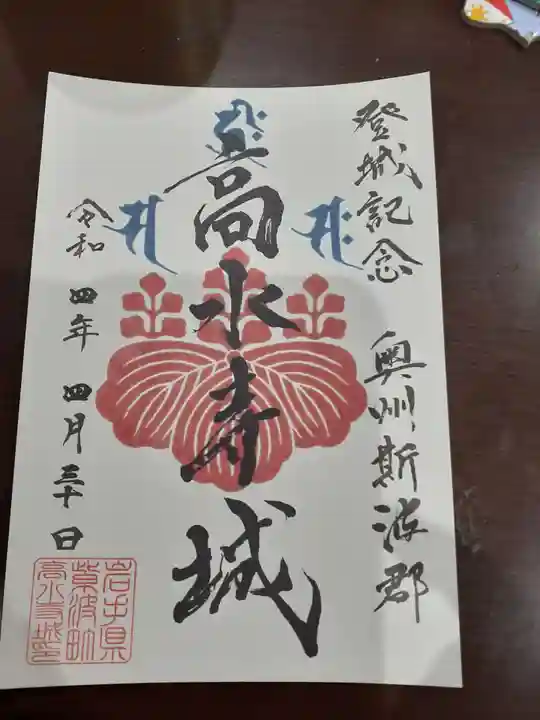 登城記念 奥州斯波郡
髙水寺城
令和四年 四月三十日
岩手県
紫波町
高水寺城印